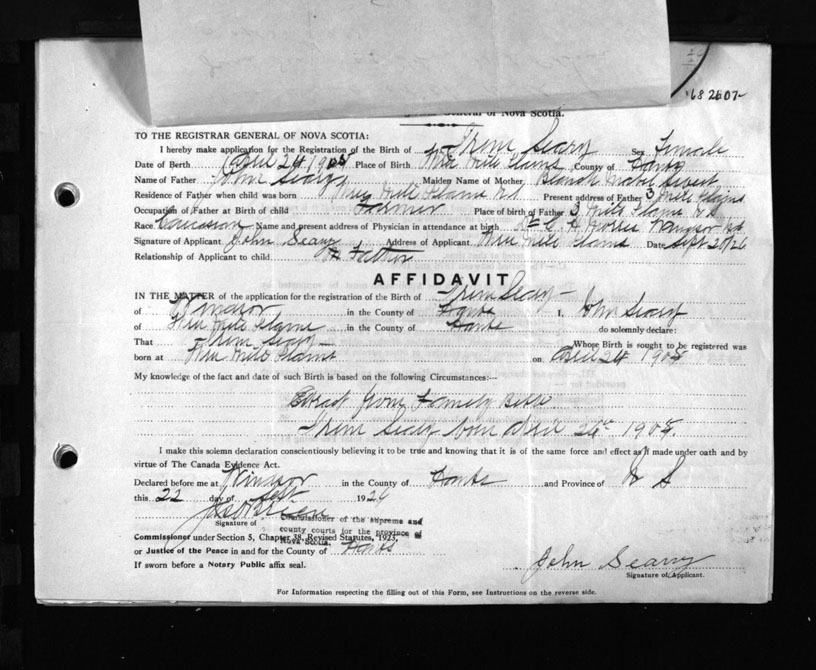 68 2607
General of Nova Scotia.
TO THE REGISTRAR GENERAL OF NOVA SCOTIA:
I hereby make application for the Registration of the Birth of Irene Seary Sex Female
Date of Birth April 24 1908 Place of Birth Three Mile Plains County of Hants
Name of Father John Seary Maiden Name of Mother Blanch
Residence of Father when child was born Three Mile Plains N S Present address of Father 3 Mile Plains
Occupation of Father at Birth of child Farmer Place of birth of Father 3 Mile Plains N S
Race Name and present address of Physician in attendance at birth Dr Windsor N S
Signature of Applicant John Seary Address of Applicant Three Mile Plains Date Sept 20/26
Relationship of Applicant to child Father
AFFIDAVIT
IN THE MATTER of the application for the registration of the Birth of Irene Seary
of Windsor in the County of Hants I, John Seary
of Three Mile Plains in the County of Hants do solemnly declare:
That Irene Seary Whose Birth is sought to be registered was
born at Three Mile Plains on April 24 1908
My knowledge of the fact and date of such Birth is based on the following Circumstances:—
from Family
Irene Seary born April 24th 1908.
I make this solemn declaration conscientiously believing it to be true and knowing that it is of the same force and effect as if made under oath and by
virtue of The Canada Evidence Act.
Declared before me at Windsor in the County of Hants and Province of N S
this 22 day of Sept 1926
Signature of Commissioner of the supreme and
county courts for the province of
Nova Scotia.
Commissioner under Section 5, Chapter 38, Revised Statutes, 1923,
or Justice of the Peace in and for the County of Hants
If sworn before a Notary Public affix seal.
John Seary
Signature of Applicant.
For Information respecting the filling out of this Form, see Instructions on the reverse side.